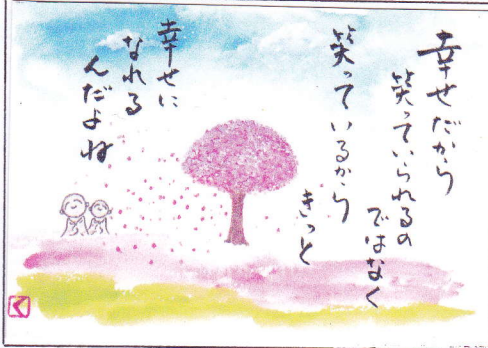 幸せだから
笑っていられるの
ではなく
笑っているから
きっと
幸せに
なれる
んだよね
く